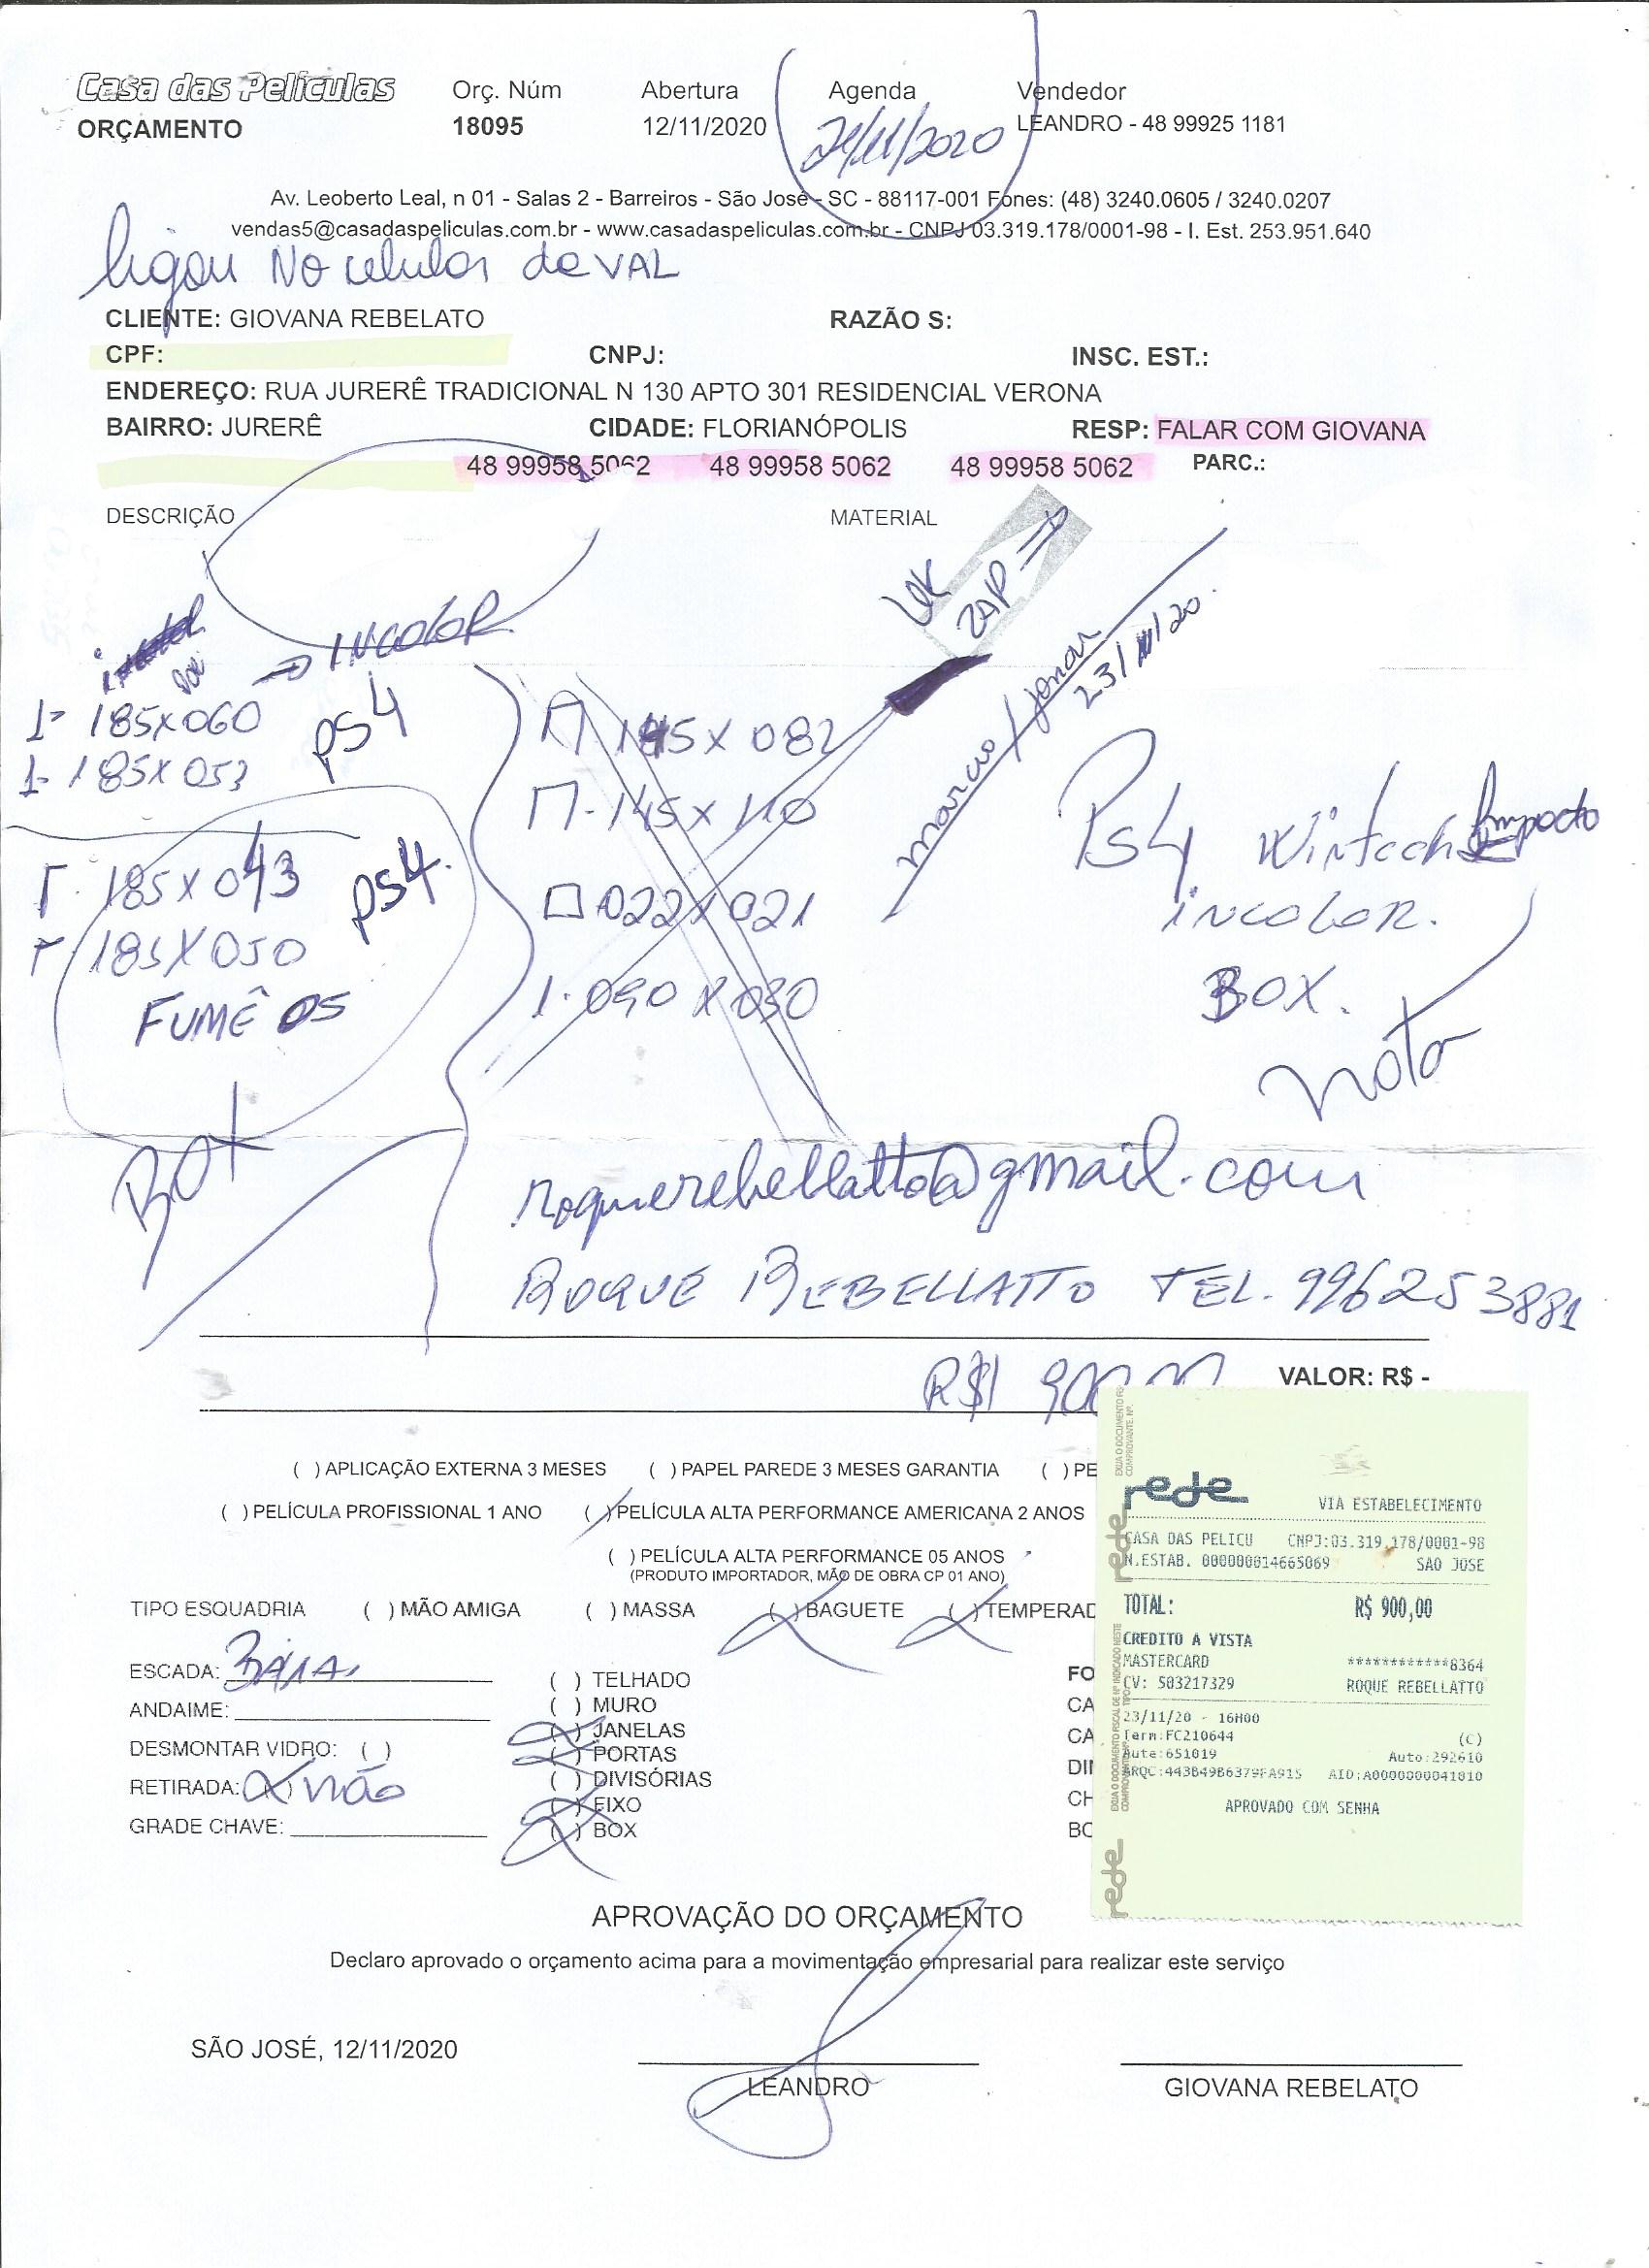 Casa das Películas Orç. Núm Abertura Agenda Vendedor
ORÇAMENTO 18095 12/11/2020 /11/2020 LEANDRO - 48 99925 1181
Av. Leoberto Leal, n 01 - Salas 2 - Barreiros - São José - SC - 88117-001 Fones: (48) 3240.0605 / 3240.0207
vendas5@casadaspeliculas.com.br - www.casadaspeliculas.com.br - CNPJ 03.319.178/0001-98 - I. Est. 253.951.640
ligou No celular da VAL
CLIENTE: GIOVANA REBELATO RAZÃO S:
CPF: CNPJ: INSC. EST.:
ENDEREÇO: RUA JURERÊ TRADICIONAL N 130 APTO 301 RESIDENCIAL VERONA
BAIRRO: JURERÊ CIDADE: FLORIANÓPOLIS RESP: FALAR COM GIOVANA
48 99958 5062 48 99958 5062 48 99958 5062 PARC.:
DESCRIÇÃO MATERIAL
ZAP
INCOLOR
marcio / jonas
23/11/20.
1- 185x060 ps4
1- 185x053
145x082
145x110
185x043 ps4.
185x050
FUMÊ 05
022x021
1. 090x030
Ps4 Wintech Impacto
incolor.
BOX.
Nota
BOX
roquerebellatto@gmail.com
ROQUE REBELLATTO TEL. 996253881
R$ 900,00 VALOR: R$ -
( ) APLICAÇÃO EXTERNA 3 MESES ( ) PAPEL PAREDE 3 MESES GARANTIA ( ) PE
( ) PELÍCULA PROFISSIONAL 1 ANO ( ) PELÍCULA ALTA PERFORMANCE AMERICANA 2 ANOS
( ) PELÍCULA ALTA PERFORMANCE 05 ANOS
(PRODUTO IMPORTADOR, MÃO DE OBRA CP 01 ANO)
TIPO ESQUADRIA ( ) MÃO AMIGA ( ) MASSA ( ) BAGUETE ( ) TEMPERAD
ESCADA: BAIXA
ANDAIME:
DESMONTAR VIDRO: ( )
RETIRADA: (X) não
GRADE CHAVE:
( ) TELHADO
( ) MURO
(X) JANELAS
(X) PORTAS
( ) DIVISÓRIAS
(X) FIXO
(X) BOX
FO
CA
CA
DI
CH
BO
rede
VIA ESTABELECIMENTO
CASA DAS PELICU CNPJ:03.319.178/0001-98
N.ESTAB. 000000014665069 SAO JOSE
TOTAL: R$ 900,00
CREDITO A VISTA
MASTERCARD ************8364
CV: 503217329 ROQUE REBELLATTO
23/11/20 - 16H00
Term:FC210644 (C)
Aute:651019 Auto:292610
ARQC:443B49B6379FA915 AID:A0000000041010
APROVADO COM SENHA
APROVAÇÃO DO ORÇAMENTO
Declaro aprovado o orçamento acima para a movimentação empresarial para realizar este serviço
SÃO JOSÉ, 12/11/2020
LEANDRO GIOVANA REBELATO